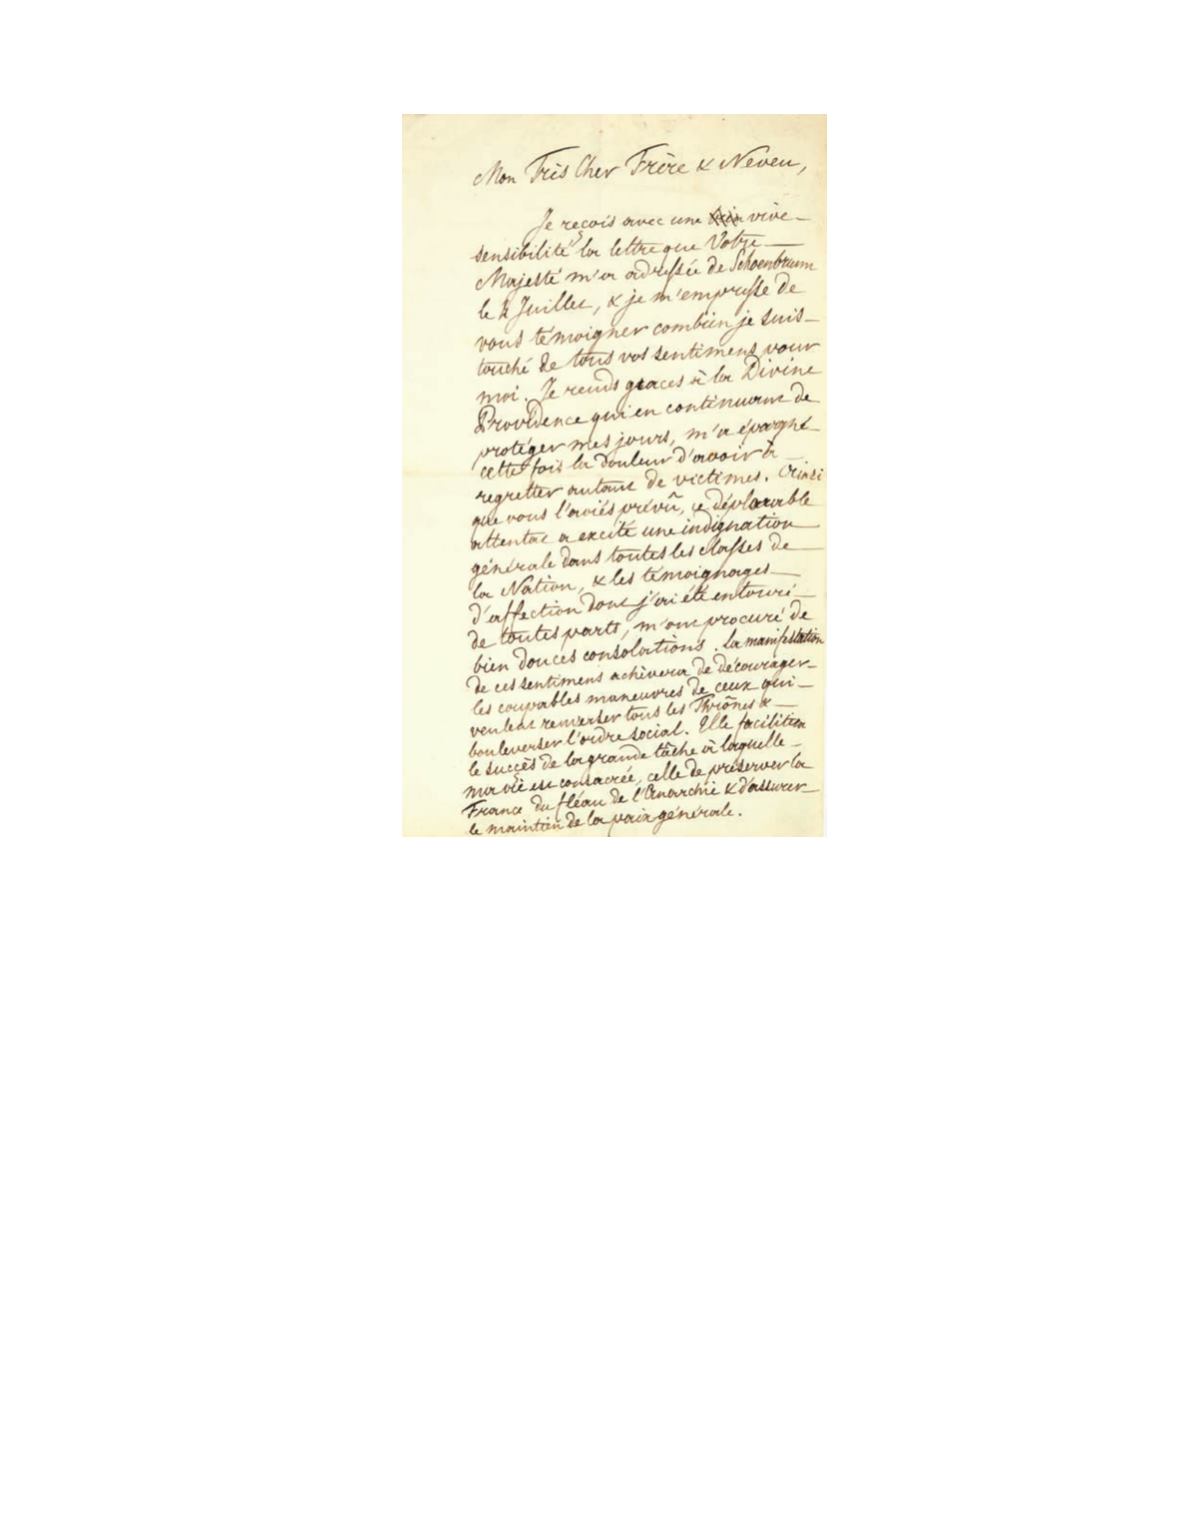 Mon Très Cher Frère & Neveu,
Je reçois avec une vive
sensibilité la lettre que Votre
Majesté m'a adressée de Schoenbrunn
le 4 Juillet, & je m'empresse de
vous témoigner combien je suis
touché de tous vos sentimens pour
moi. Je rends graces à la Divine
Providence qui en continuant de
protéger mes jours, m'a épargné
cette fois la douleur d'avoir à
regretter autant de victimes. Ainsi
que vous l'aviés prévû, ce déplorable
attentat a excité une indignation
générale dans toutes les classes de
la Nation, & les témoignages
d'affection dont j'ai été entouré
de toutes parts, m'ont procuré de
bien douces consolations. La manifestation
de ces sentimens achèvera de décourager
les coupables maneuvres de ceux qui
veulent renverser tous les Thrônes &
bouleverser l'ordre social. Elle facilitera
le succès de la grande tâche à laquelle
ma vie est consacrée, celle de préserver la
France du fléau de l'Anarchie & d'assurer
le maintien de la paix générale.